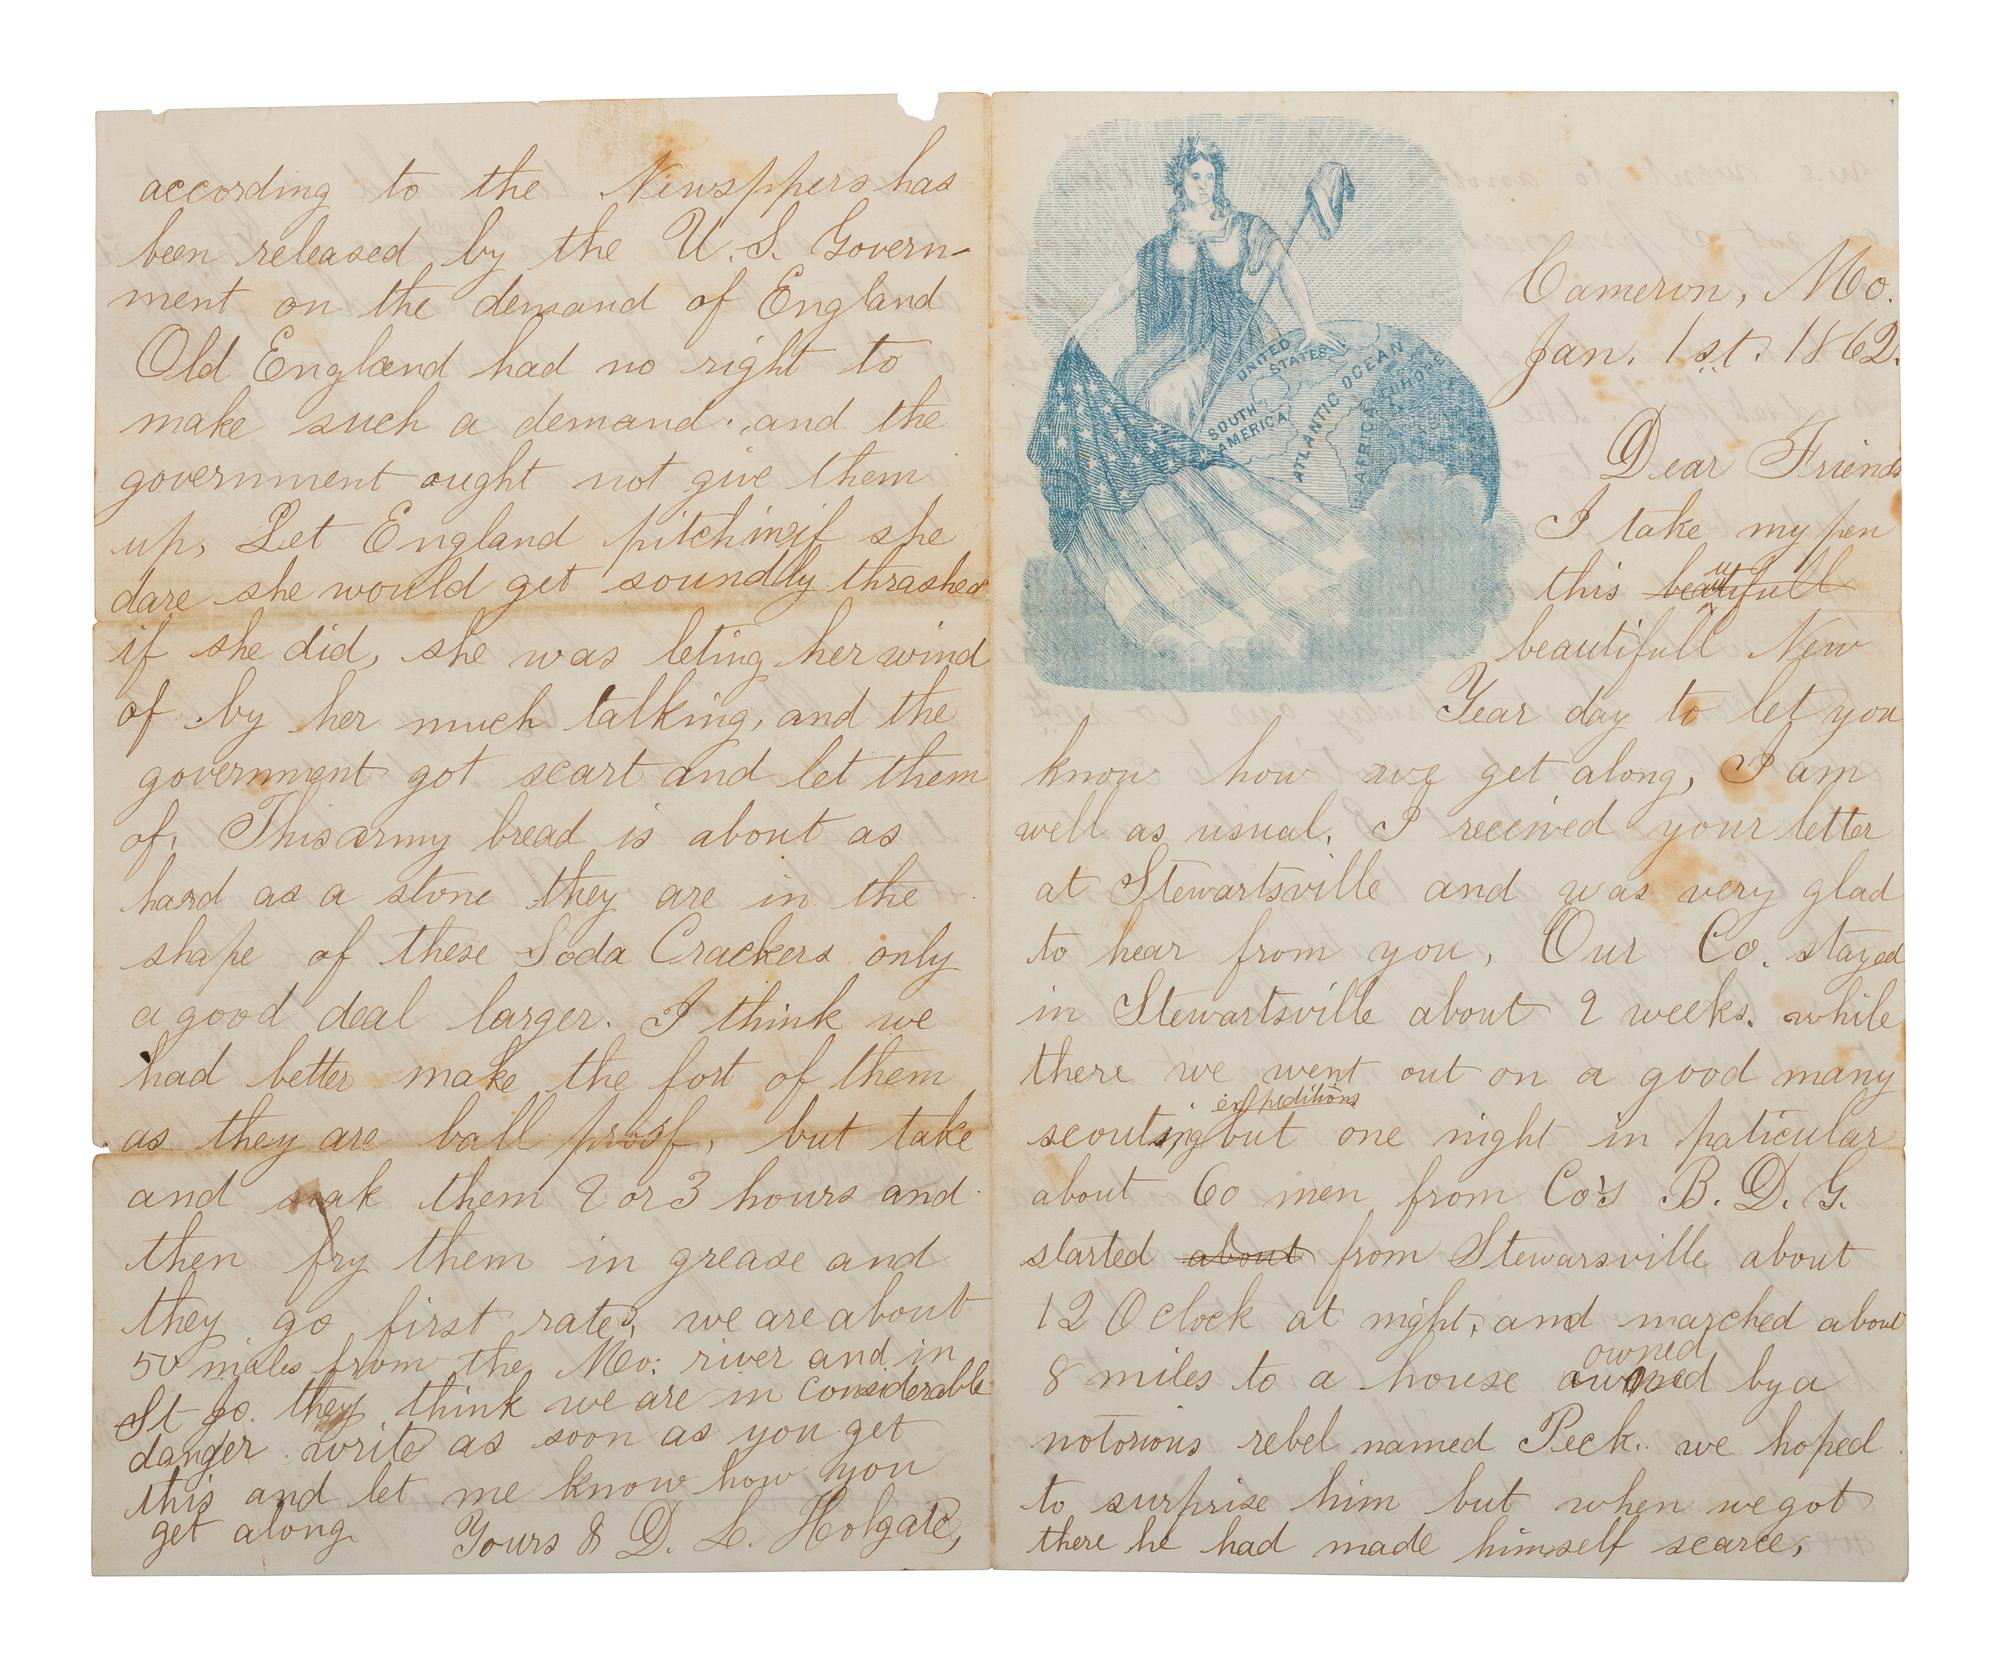 Cameron, Mo.
Jan. 1st. 1862.
Dear Friends
I take my pen
this beautifull
beautifull New
Year day to let you
know how we get along, I am
well as usual. I received your letter
at Stewartsville and was very glad
to hear from you, Our Co. stayed
in Stewartsville about 2 weeks. while
there we went out on a good many
expeditions
scouting but one night in paticular
about 60 men from Co's B. D. G.
started about from Stewarsville about
12 Oclock at night, and marched about
owned
8 miles to a house owned by a
notorious rebel named Peck. we hoped
to surprise him but when we got
there he had made himself scarce,
according to the Newsppers has
been released by the U. S. Govern-
ment on the demand of England
Old England had no right to
make such a demand. and the
government ought not give them
up, Let England pitchin if she
dare she would get soundly thrashed
if she did, she was leting her wind
of by her much talking, and the
government got scart and let them
of. This army bread is about as
hard as a stone they are in the
shape of these Soda Crackers only
a good deal larger. I think we
had better make the fort of them
as they are ball proof, but take
and soak them 2 or 3 hours and
then fry them in grease and
they go first rate, we are about
50 miles from the Mo. river and in
St Jo. they think we are in considerable
danger. write as soon as you get
this and let me know how you
get along Yours & D. L. Holgate,
UNITED
STATES
SOUTH
AMERICA
ATLANTIC OCEAN
AFRICA
EUROPE